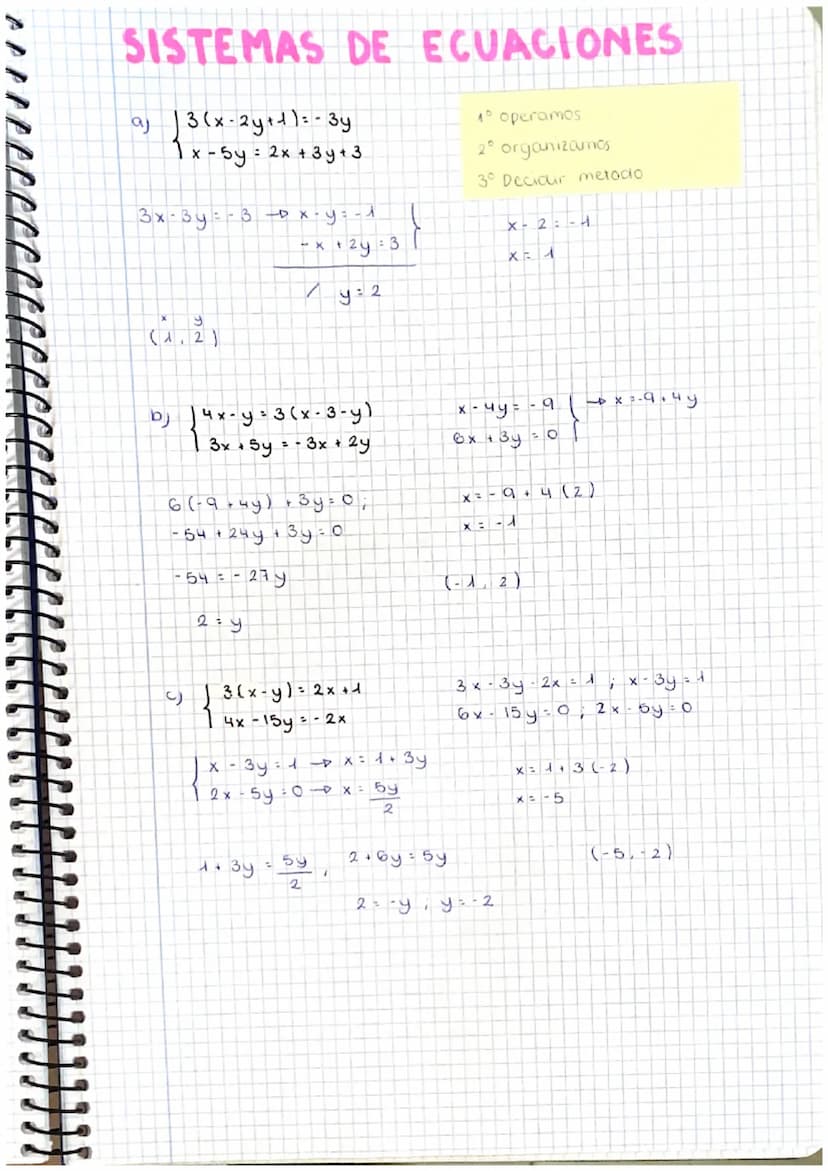 SISTEMAS DE ECUACIONES
a) { 3(x-2y+1) = -3y
x - 5y = 2x + 3y + 3
1º operamos
2º organizamos
3º Decidir metodo
3x - 3y = -3 → x - y = -1
-x + 2y = 3 }
/ y = 2
x - 2 = -1
x = 1
x y
(1, 2)
b) { 4x - y = 3(x - 3 - y)
3x + 5y = -3x + 2y
x - 4y = -9 } → x = -9 + 4y
6x + 3y = 0
6(-9 + 4y) + 3y = 0;
-54 + 24y + 3y = 0
-54 = -27y
2 = y
x = -9 + 4(2)
x = -1
(-1, 2)
c) { 3(x-y) = 2x + 1
4x - 15y = -2x
3x - 3y - 2x = 1 ; x - 3y = 1
6x - 15y = 0 ; 2x - 5y = 0
{ x - 3y = 1 → x = 1 + 3y
2x - 5y = 0 → x = 5y/2
x = 1 + 3(-2)
x = -5
1 + 3y = 5y/2 , 2 + 6y = 5y
2 = -y , y = -2
(-5, -2)